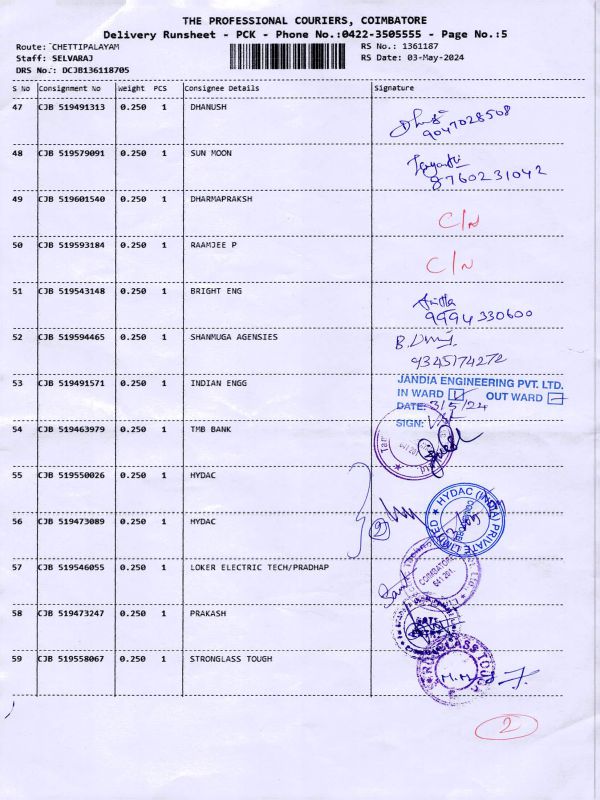 THE PROFESSIONAL COURIERS, COIMBATORE
Delivery Runsheet - PCK - Phone No.:0422-3505555 - Page No.:5
Route: CHETTIPALAYAM RS No.: 1361187
Staff: SELVARAJ RS Date: 03-May-2024
DRS No.: DCJB136118705
S No Consignment No Weight PCS Consignee Details Signature
47 CJB 519491313 0.250 1 DHANUSH
9047028508
48 CJB 519579091 0.250 1 SUN MOON
8760231042
49 CJB 519601540 0.250 1 DHARMAPRAKSH
C/N
50 CJB 519593184 0.250 1 RAAMJEE P
C/N
51 CJB 519543148 0.250 1 BRIGHT ENG
9994 330600
52 CJB 519594465 0.250 1 SHANMUGA AGENSIES
9345174272
53 CJB 519491571 0.250 1 INDIAN ENGG
JANDIA ENGINEERING PVT. LTD.
IN WARD OUT WARD
DATE: 3/5/24
SIGN:
54 CJB 519463979 0.250 1 TMB BANK
55 CJB 519550026 0.250 1 HYDAC
56 CJB 519473089 0.250 1 HYDAC
2
HYDAC (INDIA) PRIVATE LIMITED
COIMBATORE
57 CJB 519546055 0.250 1 LOKER ELECTRIC TECH/PRADHAP
COIMBATORE
641 201.
58 CJB 519473247 0.250 1 PRAKASH
59 CJB 519558067 0.250 1 STRONGLASS TOUGH
M.M
2